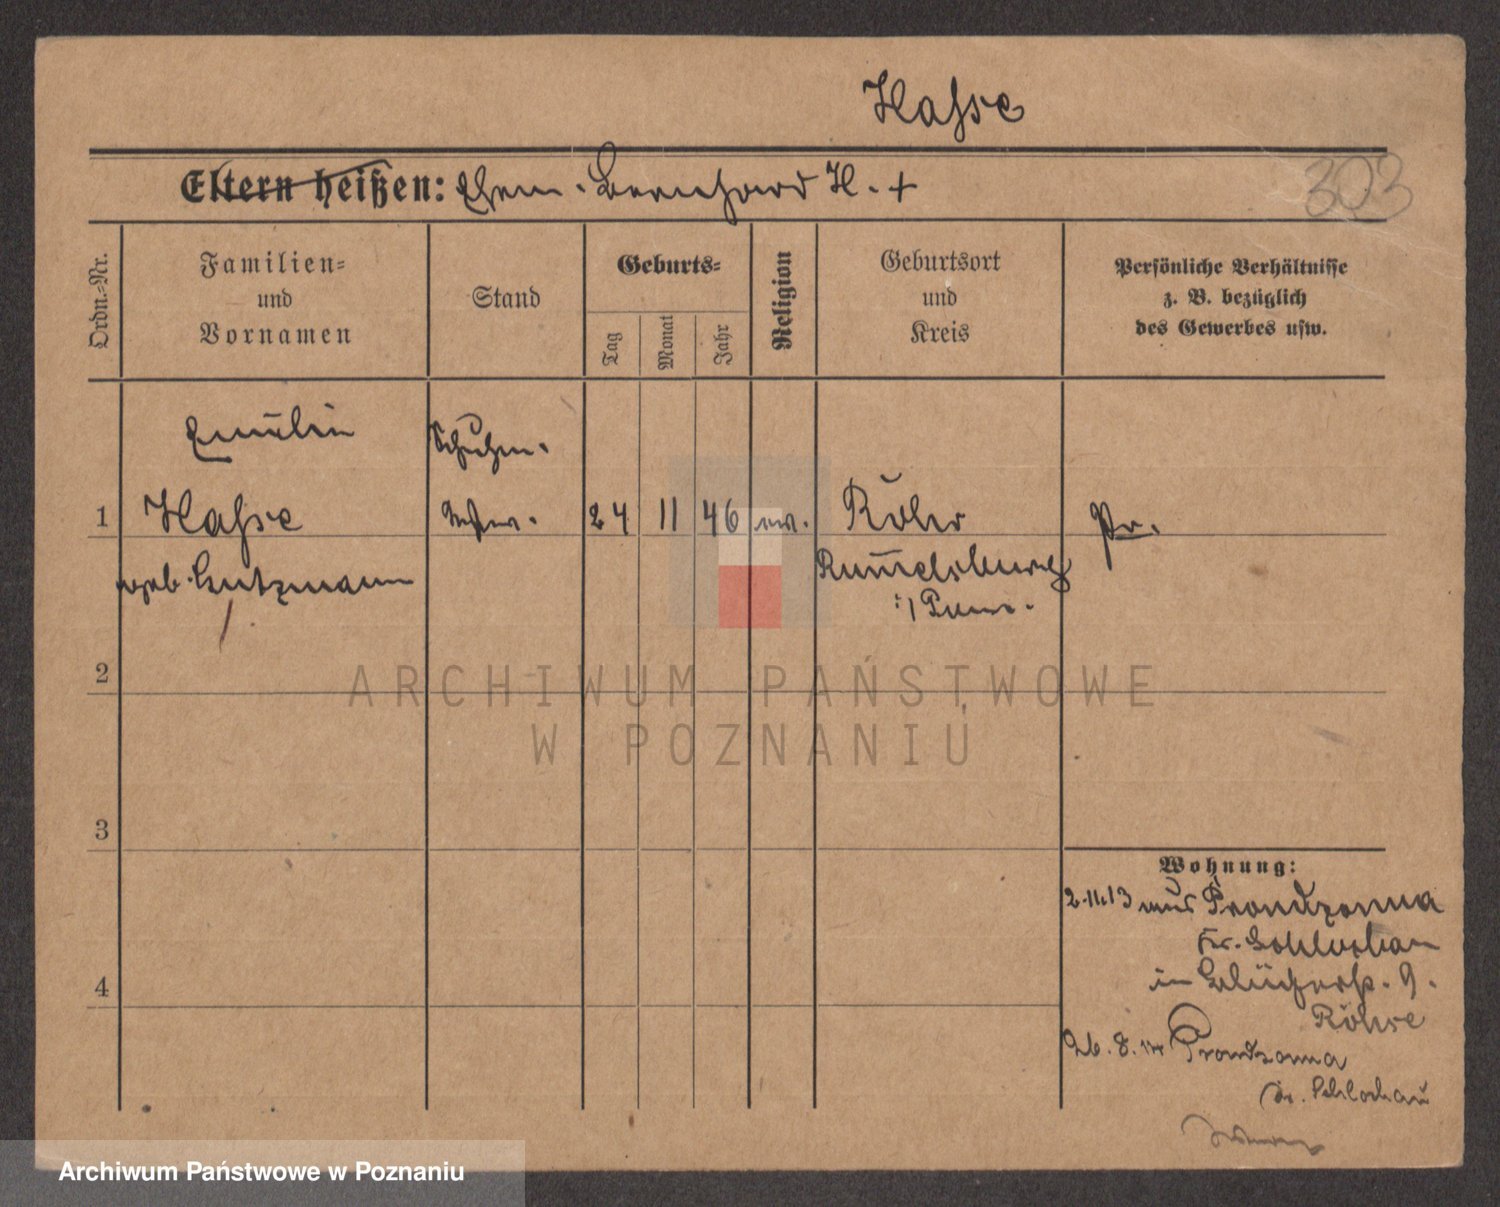 Hasse
303
Eltern heißen: Ehem. Bernhard H. +
Ordn.-Nr.
Familien-
und
Vornamen
Stand
Geburts-
Tag
Monat
Jahr
Religion
Geburtsort
und
Kreis
Persönliche Verhältnisse
z. B. bezüglich
des Gewerbes usw.
Emilie
Schuhm.
1 Hasse 24 11 46 ev. Röhr Pr.
geb. Gutzmann Rummelsburg
i/Pom.
2
3
4
Wohnung:
2.11.13 aus Prondzonna
Kr. Schlochau
in Blücherstr. 9.
Röhr
26. 8. 14 Prondzonna
Kr. Schlochau
ARCHIWUM PAŃSTWOWE
W POZNANIU
Archiwum Państwowe w Poznaniu